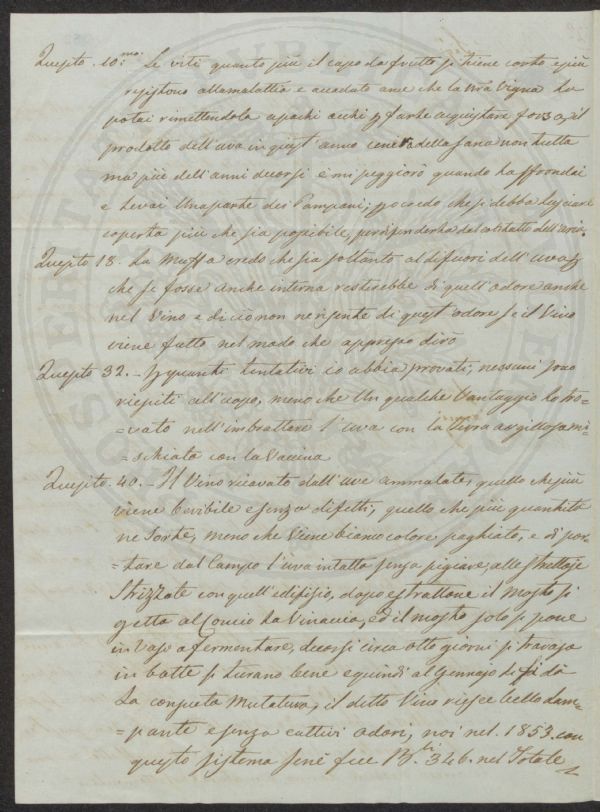 Quesito 10.mo: Le viti quanto più il capo da frutto si tiene corto e più
resistono alla malattia e accaduto ame che la mia Vigna ho
potai rimettendola a pochi occhi p farle acquistare forza, il
prodotto dell'uva in quest'anno cene'ra della sana non tutta
ma più dell'anni decorsi e mi peggiorò quando ha affrondai
e Levai Una parte dei Pampani; p credo che si debba lasciare
coperta più che sia possibile, per difenderla dal contatto dell'aria.
Quesito 18. La Muffa credo che sia soltanto al difuori dell'uva p
che se fosse anche interna restirebbe di quell'odore anche
nel Vino e di ciò non ne risente di quest'odore se il Vino
viene fatto nel modo che appresso dirò
Quesito 32. - p quanti tentativi io abbia provati, nessuni sono
riesciti all'uopo, meno che Un qualche Vantaggio ho tro=
=vato nell'imbrattare l'uva con la terra argillosa mi=
=schiata con la Vaccina
Quesito. 40. - Il Vino ricavato dall'uve ammalate, quello che più
viene bevibile e senza difetti, quello che più quantità
ne sorte, meno che Viene bianco colore pagliato, e di por=
=tare dal Campo l'uva intatta senza pigiare, alle Strettoje
Strizzate con quell'edifizio, dopo estrattone il Mosto si
getta al Concio la Vinaccia, ed il mosto solo si pone
in Vaso a fermentare, decorsi circa otto giorni si travasa
in botte si turano bene e quindi al Gennajo li si dà
La consueta Mutatura, il detto Vino riesce bello lam=
=pante e senza cattivi odori, noi nel. 1853. con
questo sistema senè fece B.li 346. nel Totale